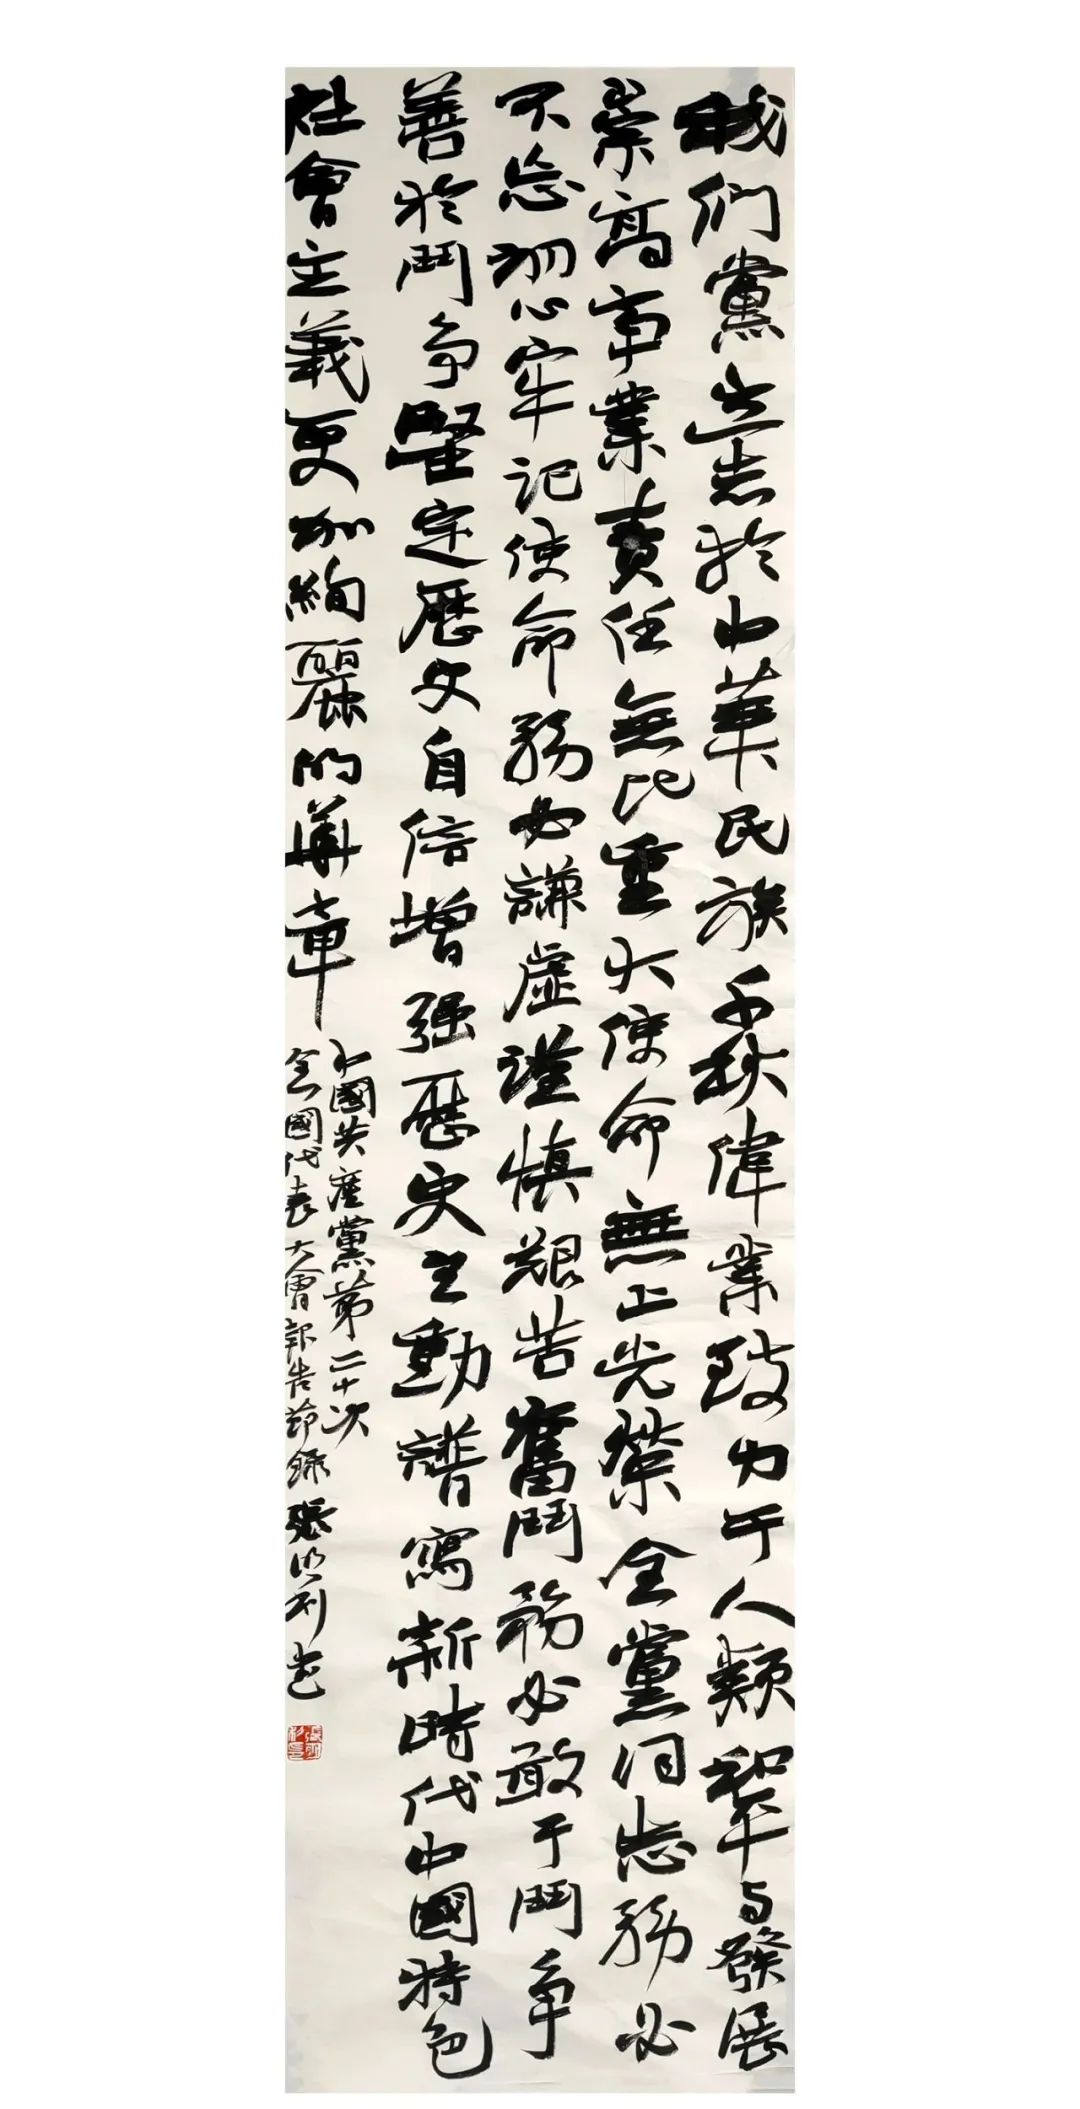 我們黨立志於中華民族千秋偉業致力于人類和平与發展
崇高事業責任無比重大使命無上光榮全黨同志務必
不忘初心牢記使命務必謙虛謹慎艱苦奮鬥務必敢于鬥爭
善於鬥争堅定歷史自信增强歷史主動譜寫新時代中國特色
社會主義更加絢麗的華章
中國共產黨第二十次
全國代表大會報告節錄張明利書